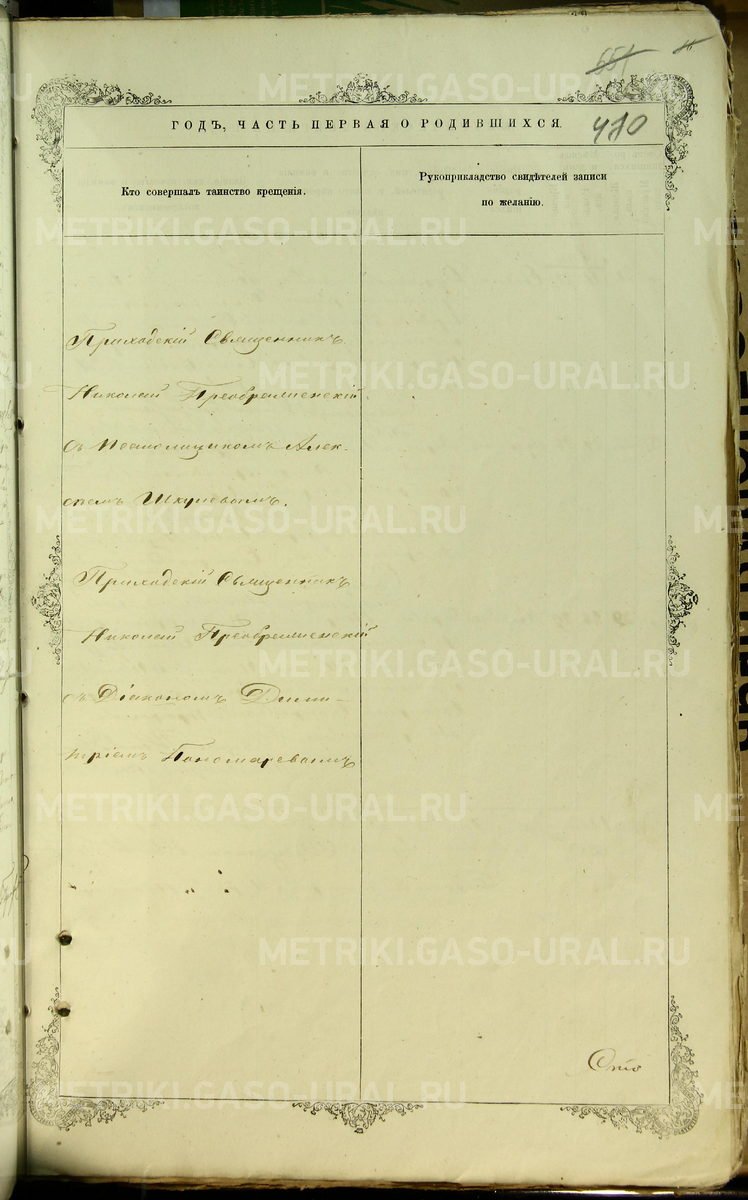 651
470
ГОДЪ, ЧАСТЬ ПЕРВАЯ О РОДИВШИХСЯ.
Кто совершалъ таинство крещенія.
Рукоприкладство свидѣтелей записи
по желанію.
Приходскій Священникъ
Николай Преображенскій
съ Псаломщикомъ Алек-
сѣемъ Шкулевымъ.
Приходскій Священникъ
Николай Преображенскій
съ Діакономъ Дими-
тріемъ Пономаревымъ
METRIKI.GASO-URAL.RU